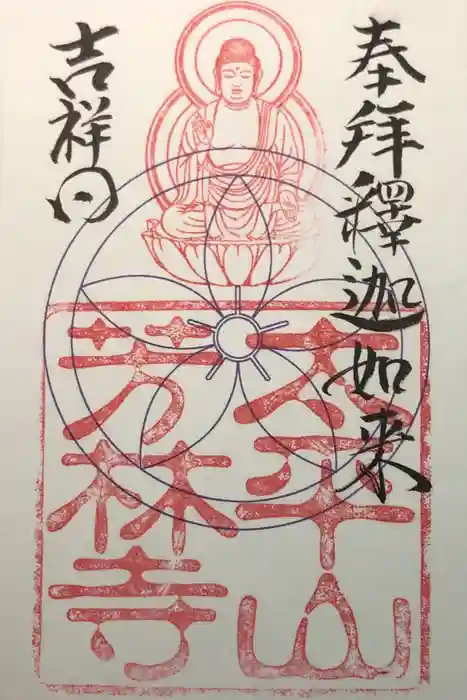 奉拜釋迦如来
吉祥日
太平山
芳林寺